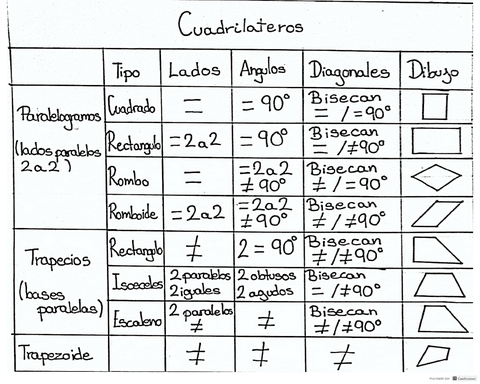 Cuadrilateros
Tipo Lados Angulos Diagonales Dibujo
Paralelogramos
(lados paralelos
2a2)
Cuadrado = = 90° Bisecan
= / = 90°
Rectangulo =2a2 = 90° Bisecan
= /≠90°
Rombo = =2a2
≠ 90° Bisecan
≠ / = 90°
Romboide =2a2 =2a2
≠ 90° Bisecan
≠ / ≠ 90°
Trapecios
(bases
paralelas)
Rectanglo ≠ 2 = 90° Bisecan
≠ / ≠ 90°
Isoceles 2 paralelos
2 igales 2 obtusos
2 agudos Bisecan
= / ≠ 90°
Escaleno 2 paralelo
≠ ≠ Bisecan
≠ / ≠ 90°
Trapezoide ≠ ≠ ≠